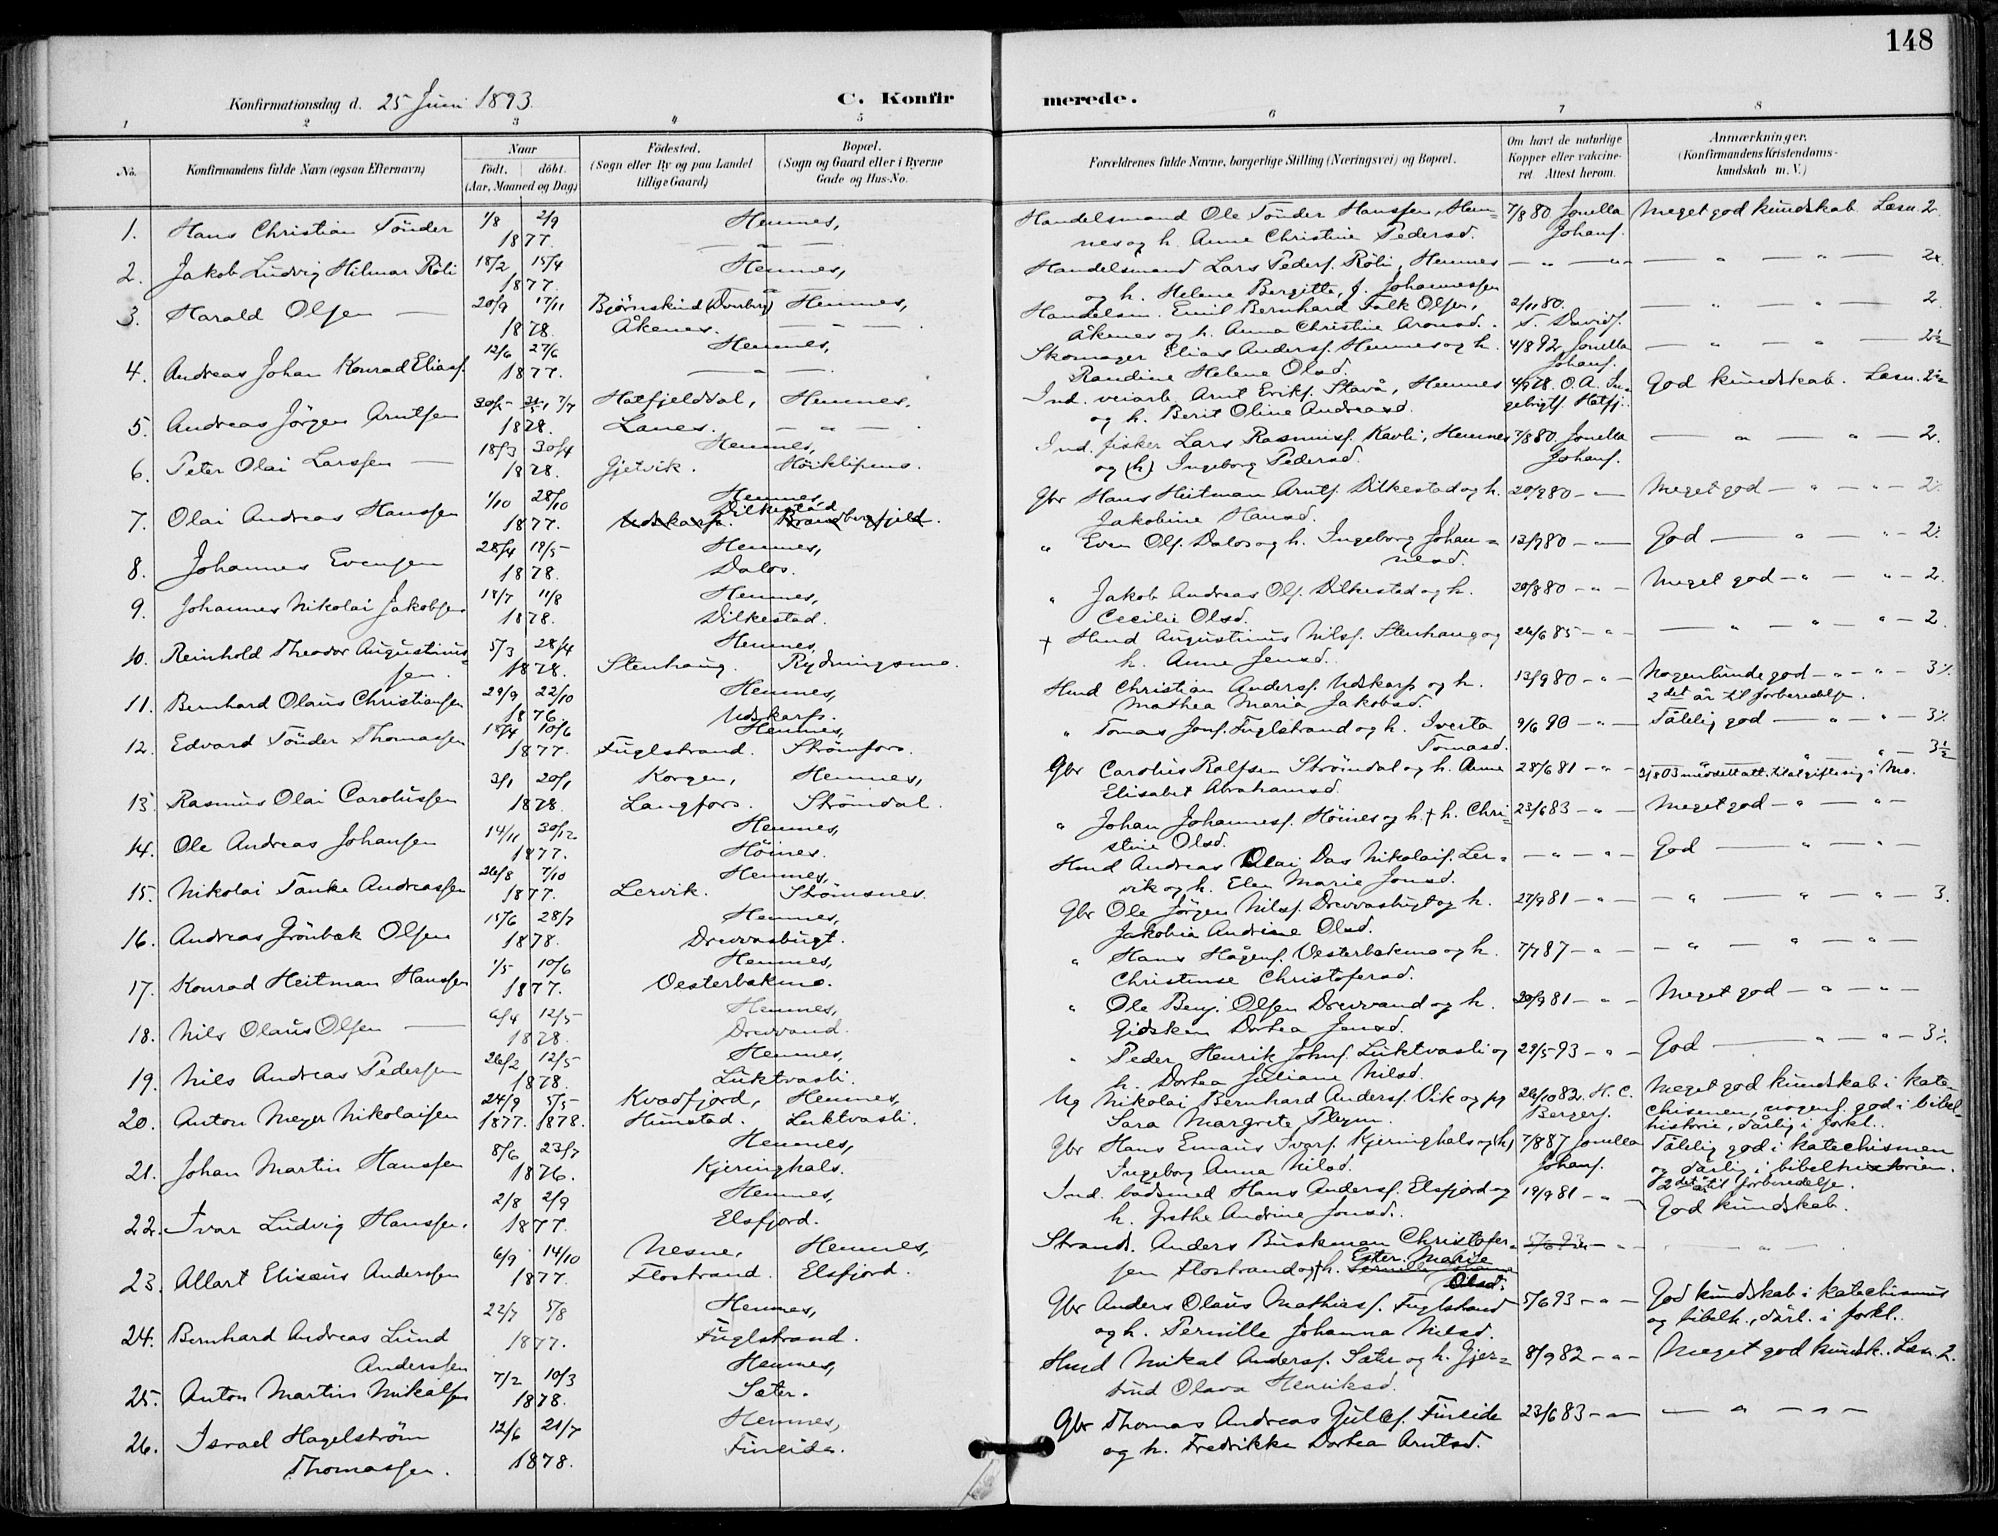 148
Konfirmationsdag d. 25 Juni 1893.
C. Konfirmerede.
1 2 3 4 5 6 7 8
No.
Konfirmandens fulde Navn (ogsaa Efternavn)
Naar
födt. döbt.
(Aar, Maaned og Dag)
Födested.
(Sogn eller By og paa Landet tillige Gaard)
Bopæl.
(Sogn og Gaard eller i Byerne Gade og Hus-No.
Forældrenes fulde Navne, borgerlige Stilling (Næringsvei) og Bopæl.
Om havt de naturlige Kopper eller vaccineret. Attest herom.
Anmærkninger.
(Konfirmandens Kristendomskundskab m. V.)
1. Hans Christian Tönder 1/8 2/9 1877. Hemnes, Handelsmand Ole Tönder Hanssen, Hemnes og h. Anne Christine Pedersd. 7/8 80 Jonella Johans. Meget god kundskab. Læsn. 2.
2. Jakob Ludvig Hilmar Röli 18/2 15/4 1877. Hemnes, Handelsmand Lars Peders. Röli, Hemnes og h. Helene Bergitte, f. Johannessen — „ — „ — — „ — „ — 2.
3. Harald Olsen — 20/9 17/11 1878. Bjørnskind (Dverberg) Åkenes. Hemnes, Handelsm. Emil Bernhard Falk Olsen, Åkenes og h. Anna Christine Aronsd. 2/11 80. T. Davids. — „ — „ — 2.
4. Andreas Johan Konrad Elias. 12/6 27/6 1877. Hemnes, Skomager Elias Anders. Hemnes og h. Randine Helene Olsd. 4/8 92 Jonella Johans. — „ — „ — 2½
5. Andreas Jörgen Arntsen 1878. Hatfjelddal, Lanes. Hemnes, Ind. veiarb. Arnt Eriks. Stavå, Hemnes og h. Berit Oline Andreasd. 4/9 78. O. A. Ingebrigts. Hatfj. God kundskab. Læsn. 2½
6. Peter Olai Larssen — 18/3 30/4 1878. Hemnes, Gjetvik. Höiklipens. Ind. fisker Lars Rasmus. Kavli, Hemnes og (h) Ingeborg Pedersd. 7/8 80. Jonella Johans. — „ — „ — 2.
7. Olai Andreas Hanssen 1/10 28/10 1877. Hemnes, Dilkestad Udskarp. Brandbergfjeld. Gbr Hans Heitman Arnts. Dilkestad og h. Jakobine Hansd. 20/9 80 — „ — Meget god — „ — „ — 2.
8. Johannes Evensen 28/4 19/5 1878. Hemnes, Dalos. „ Even Ols. Dalos og h. Ingeborg Johannesd. 12/9 80 — „ — God — „ — „ — 2.
9. Johannes Nikolai Jakobsen 18/7 11/8 1878. Hemnes, Dilkestad. „ Jakob Andreas Ols. Dilkestad og h. Cecilie Olsd. 20/9 80 — „ — Meget god — „ — „ — 2.
10. Reinhold Theodor Augustinussen. 5/3 28/4 1878. Hemnes, Stenhaug. Rydningsmo. + Hmd Augustinus Nils. Stenhaug og h. Anne Jensd. 26/6 85 — „ — — „ — „ — 2
11. Bernhard Olaus Christiansen 29/9 22/10 1876. Hemnes, Udskarp. Hmd Christian Anders. Udskarp og h. Mathea Maria Jakobsd. 12/9 80 — „ — Nogenlunde god — „ — „ — 3½ 2det år til forberedelse.
12. Edvard Tönder Thomassen 15/4 10/6 1877. Hemnes, Fuglstrand. Strömfors. „ Tomas Jons. Fuglstrand og h. Iverta Tomasd. 9/6 90 — „ — Tålelig god — „ — „ — 3½
13. Rasmus Olai Carolussen 3/1 20/1 1878. Korgen, Langfors. Hemnes, Strömdal. Gbr Carolus Rolfsen Strömdal og h. Anne Elisabet Abrahamsd. 28/6 81 — „ — — „ — „ — 3½ 2/8 03 udstedt att. til at gifte sig i Mo.
14. Ole Andreas Johansen 14/11 30/12 1877. Hemnes, Höines. „ Johan Johannes. Höines og h. + h. Christine Olsd. 23/6 83 — „ — Meget god — „ — „ —
15. Nikolai Tanke Andreassen 26/8 7/10 1877. Hemnes, Lervik. Strömsnes. Hmd Andreas Olai Das Nikolais. Lervik og h. Elen Marie Jonsd. — „ — „ — God — „ — „ —
16. Andreas Grönbæk Olsen 15/6 28/7 1878. Hemnes, Drevvasbugt. Gbr Ole Jörgen Nils. Drevvasbugt og h. Jakobia Andrine Olsd. 27/9 81 — „ — — „ — „ — „ — 3.
17. Konrad Heitman Hanssen 1/5 10/6 1877. Hemnes, Vesterbækmo. „ Hans Hågens. Vesterbækmo og h. Christense Christofersd. 7/7 87 — „ — — „ — „ — „ —
18. Nils Olaus Olsen — 6/4 12/5 1878. Hemnes, Drevvand. „ Ole Benj. Olsen Drevvand og h. Gidsken Dorhea Jensd. 20/9 81 — „ — Meget god — „ — „ —
19. Nils Andreas Pedersen 26/2 12/5 1878. Hemnes, Luktvasli. „ Peder Henrik Johns. Luktvasli og h. Dorhea Juliane Nilsd. 29/5 93 — „ — God — „ — „ — 3½
20. Anton Meyer Nikolaisen 24/9 1877. 5/5 1878. Kvædfjord, Hunstad. Hemnes, Luktvasli. Ug Nikolai Bernhard Anders. Vik og pg Sara Margrete Pleym. 26/10 82. H. C. Bergers. Meget god kundskab i katechismen, nogenl. god i bibelhistorie, dårlig i forkl.
21. Johan Martin Hanssen 8/6 23/7 1876. Hemnes, Kjeringhals. Gbr Hans Emaus Ivars. Kjeringhals og (h) Ingeborg Anna Nilsd. 7/8 87 Jonella Johans. Tålelig god i katechismen og dårlig i bibelhistorien. 2det år til forberedelse.
22. Ivar Ludvig Hanssen. 2/8 2/9 1877. Hemnes, Elsfjord. Ind. bådsmed Hans Anders. Elsfjord og h. Grethe Andrine Jonsd. 19/9 81 — „ — God kundskab.
23. Allart Elisæus Anderssen 6/9 14/10 1877. Nesne, Flostrand. Hemnes, Elsfjord. Strands. Anders Buskman Christofersen Flostrand og + h. Ester Marie Olsd. 5/6 93 — „ — — „ —
24. Bernhard Andreas Lund Anderssen 22/7 5/8 1877. Hemnes, Fuglstrand. Gbr Anders Olaus Mathias. Fuglstrand og h. Pernille Johanna Nilsd. 5/6 93 — „ — God kundskab i katechismus og bibelh., dårl. i forkl.
25. Anton Martin Mikalsen 7/2 10/3 1878. Hemnes, Sæter. Hmd Mikal Anders. Sæter og h. Gjertrud Olava Henriksd. 8/9 82 — „ — Meget god kundsk. Læsn. 2.
26. Israel Hagelström Thomassen. 12/6 21/7 1878. Hemnes, Fineide. Gbr Thomas Andreas Gulles. Fineide og h. Fredrikke Dorhea Arntsd. 23/6 83 — „ — — „ — „ —